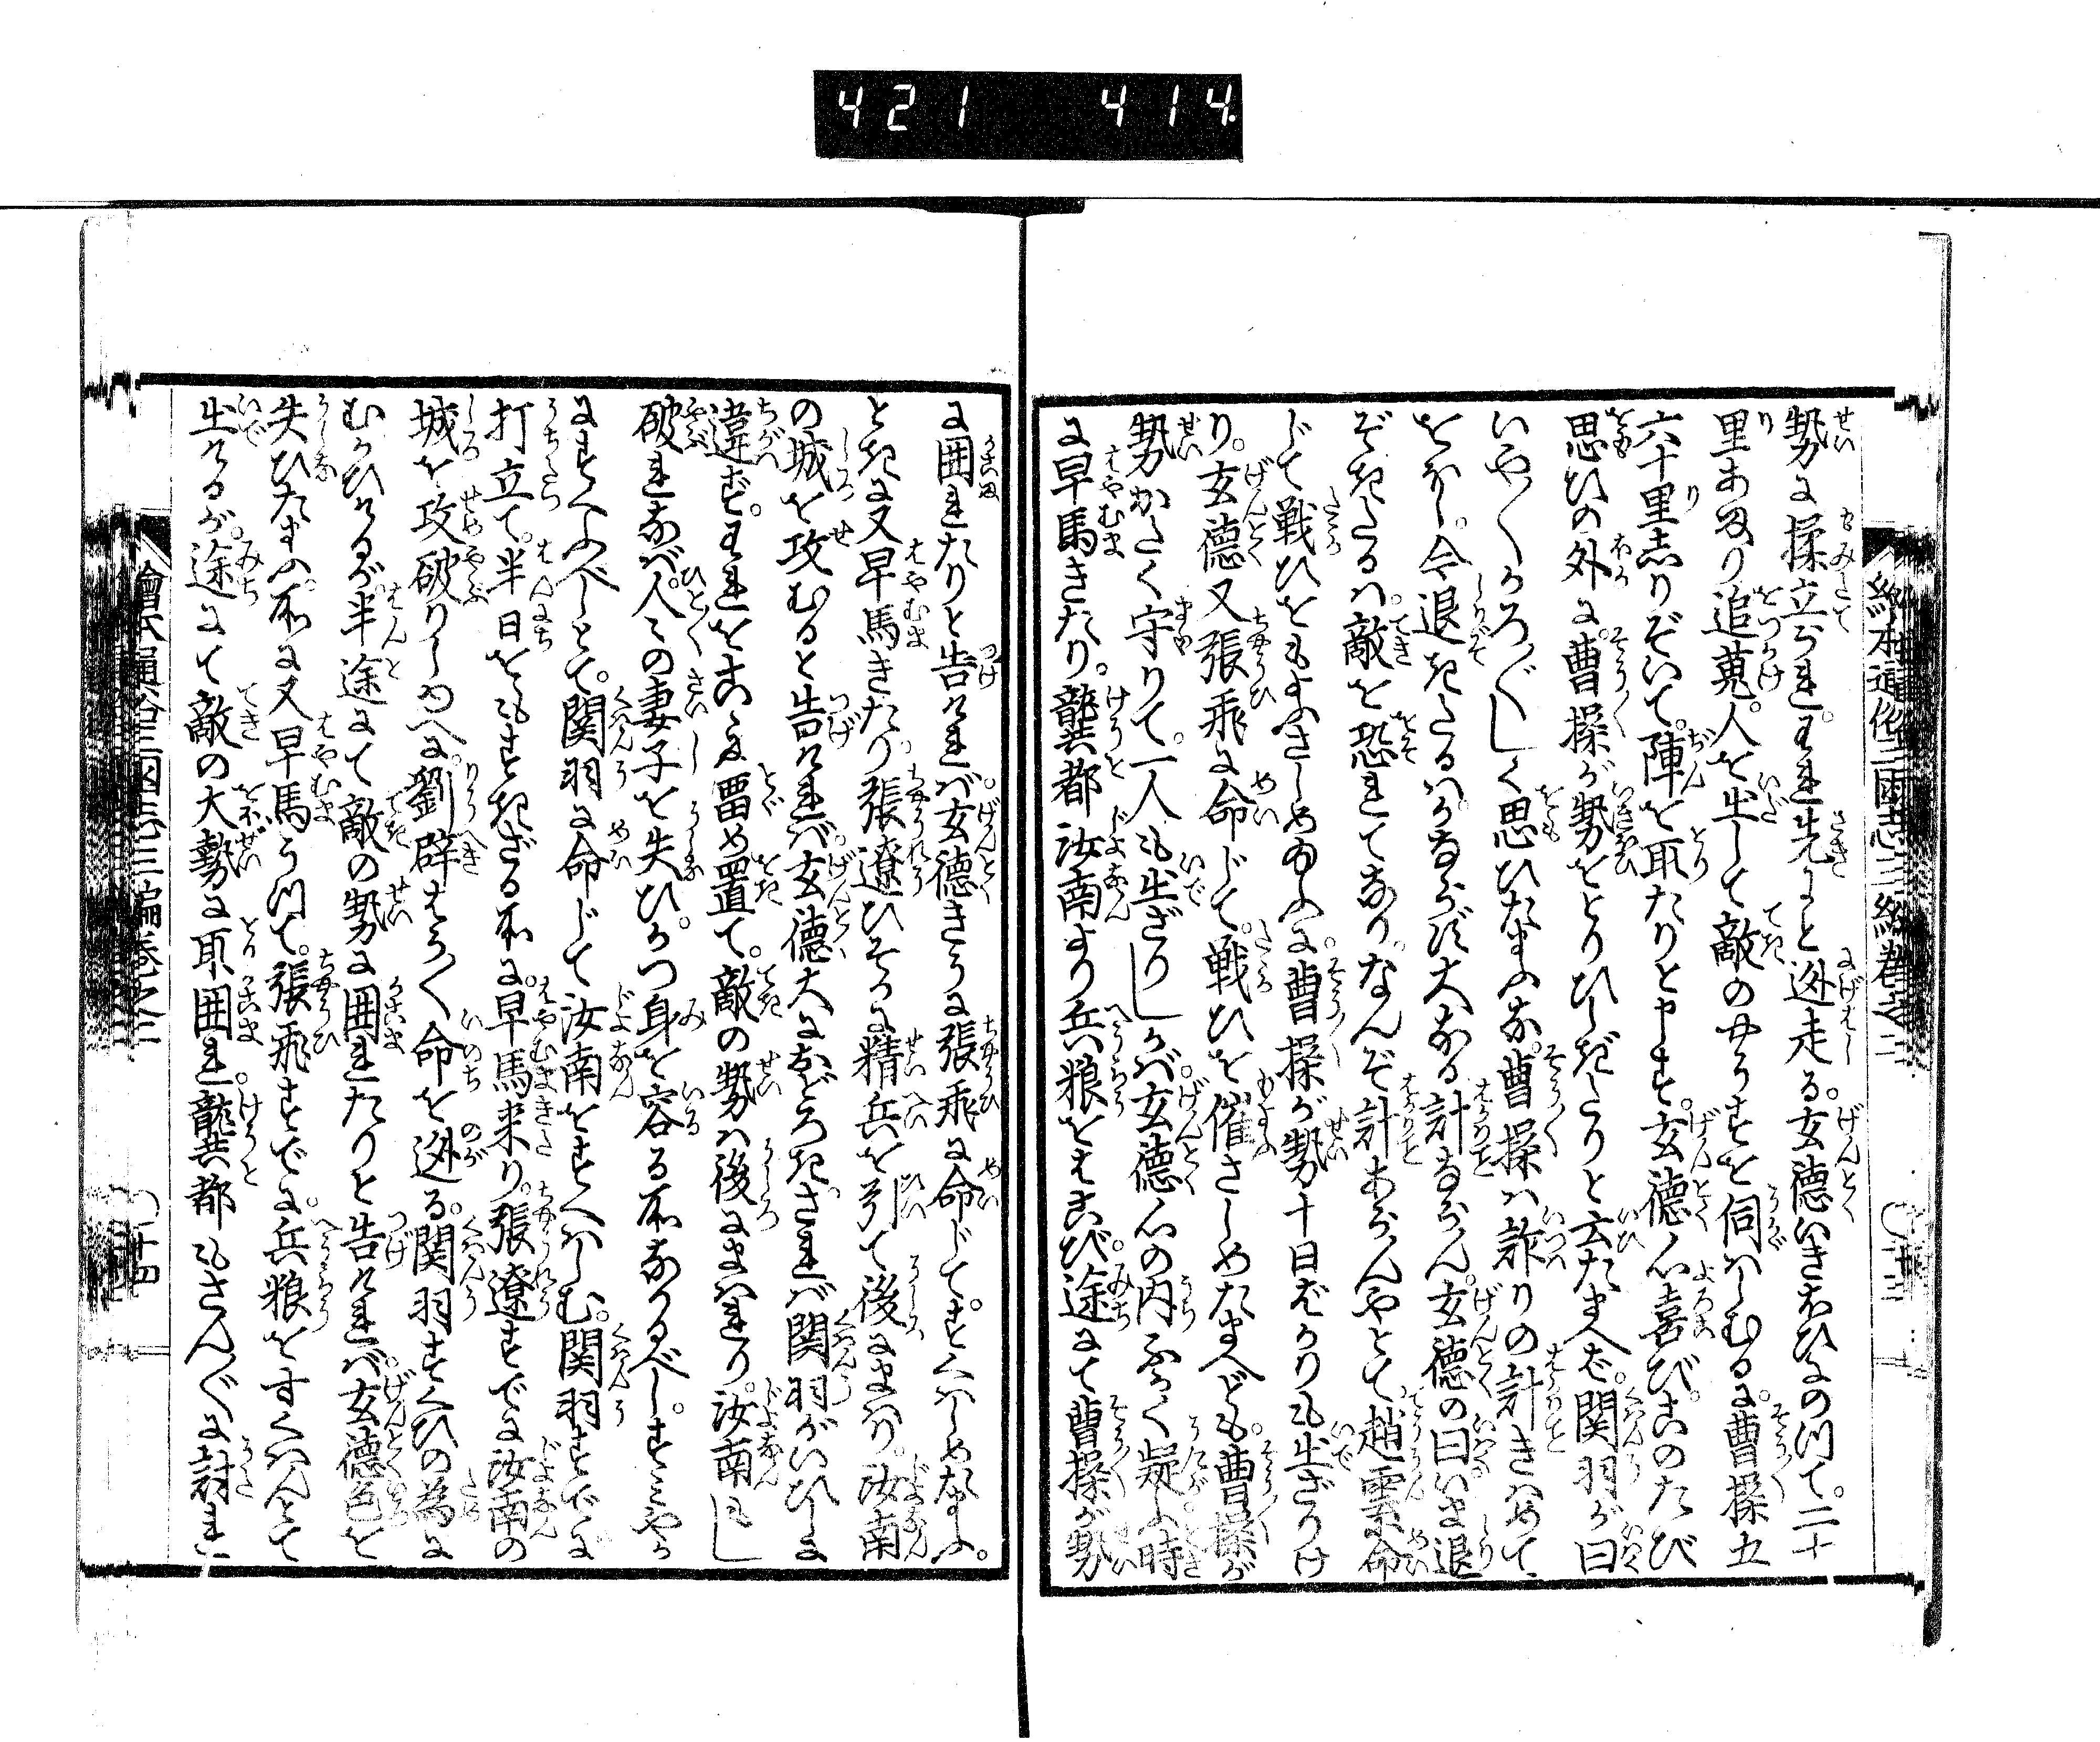 421 414.
繪本通俗三國志三編卷之二 ○十三
勢に揉立られ。われ先にと迯走る。玄德いきほひにのつて。二十
里あまり追蒐。人を出して敵のやうすを伺はしむるに。曹操五
六十里しりぞいて。陣を取たりと申す。玄德心喜び。このたび
思ひの外に。曹操が勢をとりひしぎたりと云たまへば。関羽が曰
いや〳〵かろ〴〵しく思ひたまふな。曹操は詐りの計きはめて
をほし。今退きたるは。かならず大なる計ならん。玄德の曰いま退
ぞきたるは。敵を恐れてなり。なんぞ計あらんやとて。趙雲に命
じて戦ひをもよさしめ給ふに。曹操が勢十日ばかりも出ざりけ
り。玄德又張飛に命じて。戦ひを催さしめたまへども。曹操が
勢かたく守りて。一人も出ざりしかば玄德心の内ふかく疑ふ。時
に早馬きたり。龔都汝南より兵粮をはこび。途にて曹操が勢
に囲れたりと告ければ。玄德きうに張飛に命じて。すくはしめたまふ。
とき又早馬きたり。張遼ひそかに精兵を引て後にまはり。汝南
の城を攻むると告ければ。玄德大におどろき。されば関羽がいひしに
違ず。われをこゝに畱め置て。敵の勢は後にまはれり。汝南もし
破れなば。人〻の妻子を失ひ。かつ身を容る所なかるべし。すみやか
にすくふべしとて。関羽に命じて汝南をすくはしむ。関羽すでに
打立て。半日をもすぎざる所に。早馬来り。張遼すでに汝南の
城を攻破りしゆへに。劉辟はう〳〵命を迯る。関羽すくひの為に
むかひけるが。半途にて敵の勢に囲れたりと告ければ。玄德色を
失ひたまふ。所に又早馬うつて。張飛すでに。兵粮をすくはんとて
出けるが。途にて敵の大勢に取囲れ。龔都もさん〴〵に討れ
繪本通俗三國志三編卷之二 ○十四